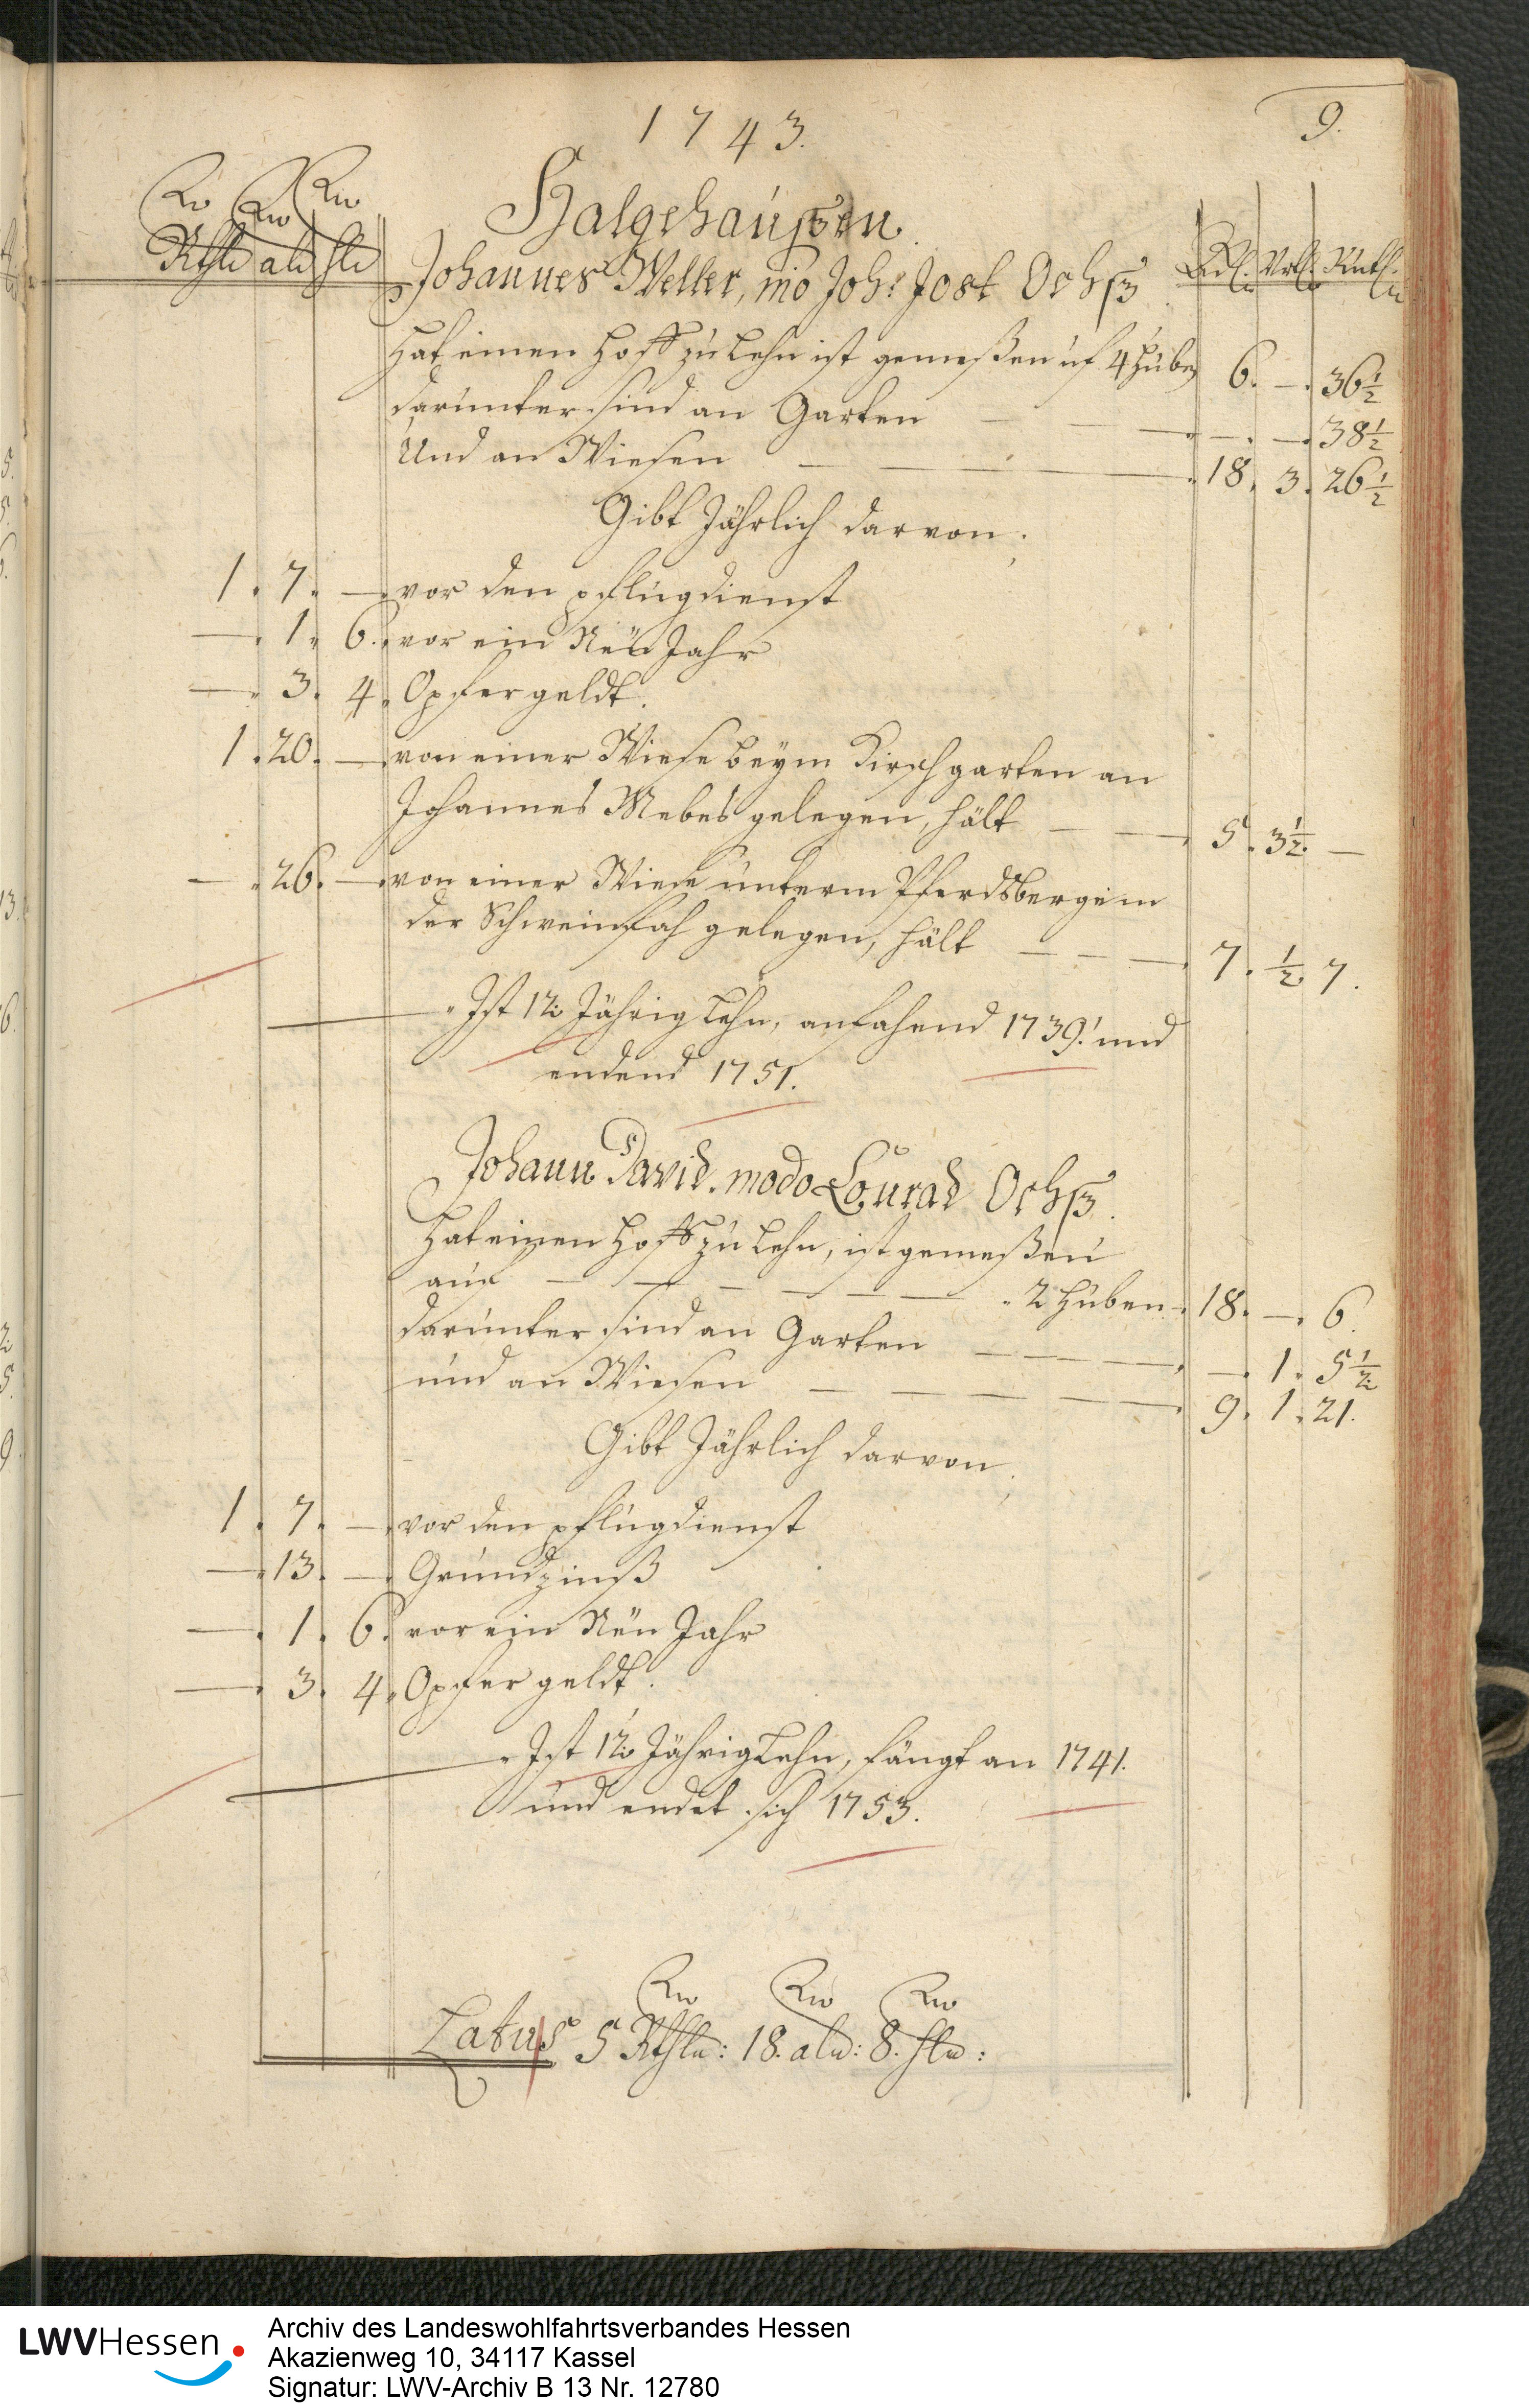 1743.
9.
Halgehaußen
Rthlr alb hlr
Johannes Weller, mo Joh: Jost Ochß
Ack. Vrtl. Ruth.
Hat einen Hoff zu Lehn ist gemeßen uf 4 Huben 6. —. 36½
darunter sind an Garten — — —. —. 38½
Und an Wiesen — — 18. 3. 26½
Gibt Jährlich darvon,
1. 7. — vor den pflugdienst
—. 1. 6. vor ein Neü Jahr
—. 3. 4. Opfergeldt.
1. 20. — von einer Wiese beym Kirschgarten an
Johannes Mebes gelegen, hält — — 5. 3½. —
—. 26. — von einer Wiese unterm Pferdsberge in
der Schweinsfah gelegen, hält — — — 7. ½. 7.
Ist 12. Jährig Lehn, anfahend 1739. und
endend 1751.
Johann David. modo Conrad Ochß.
Hat einen Hoff zu Lehn, ist gemeßen
auf — — — — — — 2 Huben. 18. —. 6.
darunter sind an Garten — — — —. 1. 5½
und an Wiesen — — — — 9. 1. 21.
Gibt Jährlich darvon,
1. 7. — vor den pflugdienst
—. 13. — Grundzinß
—. 1. 6. vor ein Neü Jahr
—. 3. 4. Opfergeldt.
Ist 12. Jährig Lehn, fängt an 1741.
und endet sich 1753.
Latus 5 Rthlr: 18. alb: 8. hlr:
LWVHessen
Archiv des Landeswohlfahrtsverbandes Hessen
Akazienweg 10, 34117 Kassel
Signatur: LWV-Archiv B 13 Nr. 12780